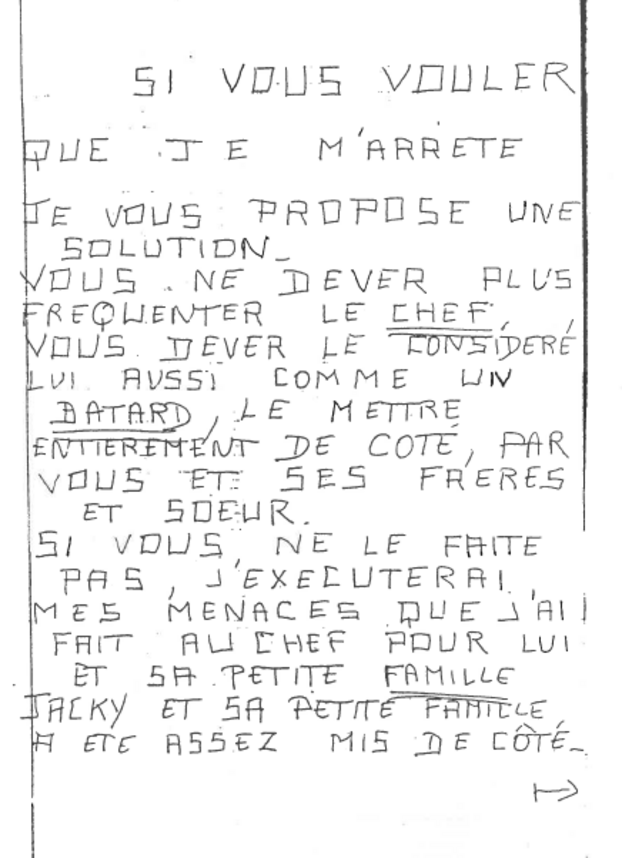 SI VOUS VOULER
QUE JE M'ARRETE
JE VOUS PROPOSE UNE
SOLUTION_
VOUS NE DEVER PLUS
FREQUENTER LE CHEF,
VOUS DEVER LE CONSIDERÉ
LUI AUSSI COMME UN
BATARD, LE METTRE
ENTIEREMENT DE COTÉ, PAR
VOUS ET SES FRERES
ET SOEUR.
SI VOUS NE LE FAITE
PAS, J'EXECUTERAI
MES MENACES QUE J'AI
FAIT AU CHEF POUR LUI
ET SA PETITE FAMILLE
JACKY ET SA PETITE FAMILLE,
A ETE ASSEZ MIS DE CÔTÉ_